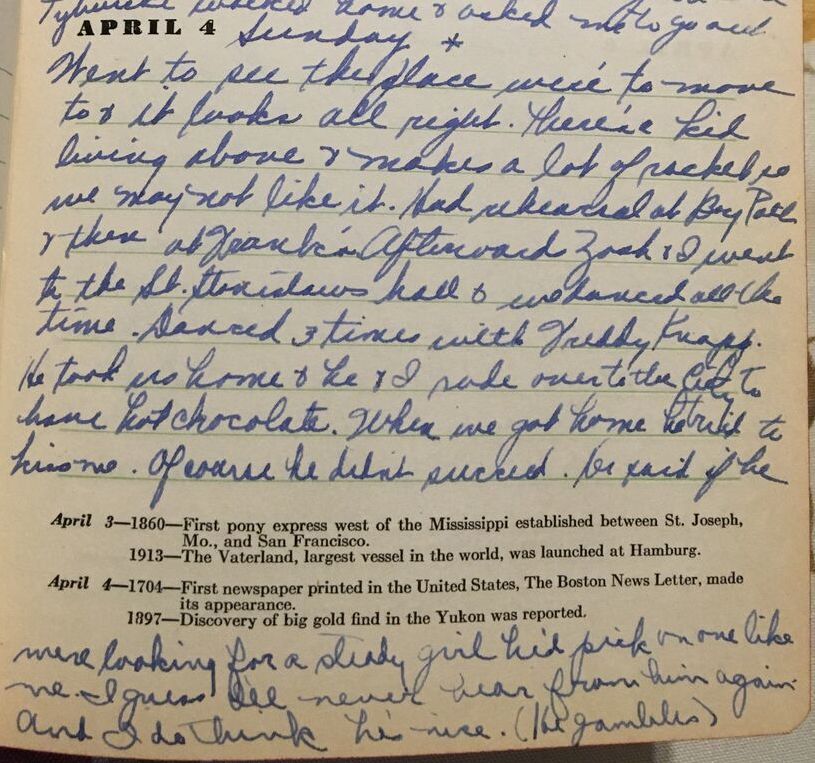 walked home & asked me to go out
APRIL 4 Sunday *
Went to see the place we're to move
to & it looks all right. There's a kid
living above & makes a lot of racket so
we may not like it. Had rehearsal at
& then at Frank's. Afterward Zosh & I went
to the St. Stanislaws hall & we danced all the
time. Danced 3 times with Freddy Knapp.
He took us home & he & I rode over to the City to
have hot chocolate. When we got home he tried to
kiss me. Of course he didn't succeed. He said if he
April 3—1860—First pony express west of the Mississippi established between St. Joseph,
Mo., and San Francisco.
1913—The Vaterland, largest vessel in the world, was launched at Hamburg.
April 4—1704—First newspaper printed in the United States, The Boston News Letter, made
its appearance.
1897—Discovery of big gold find in the Yukon was reported.
were looking for a steady girl he'd pick on one like
me. I guess I'll never hear from him again
and I do think he's nice. (He gambles)